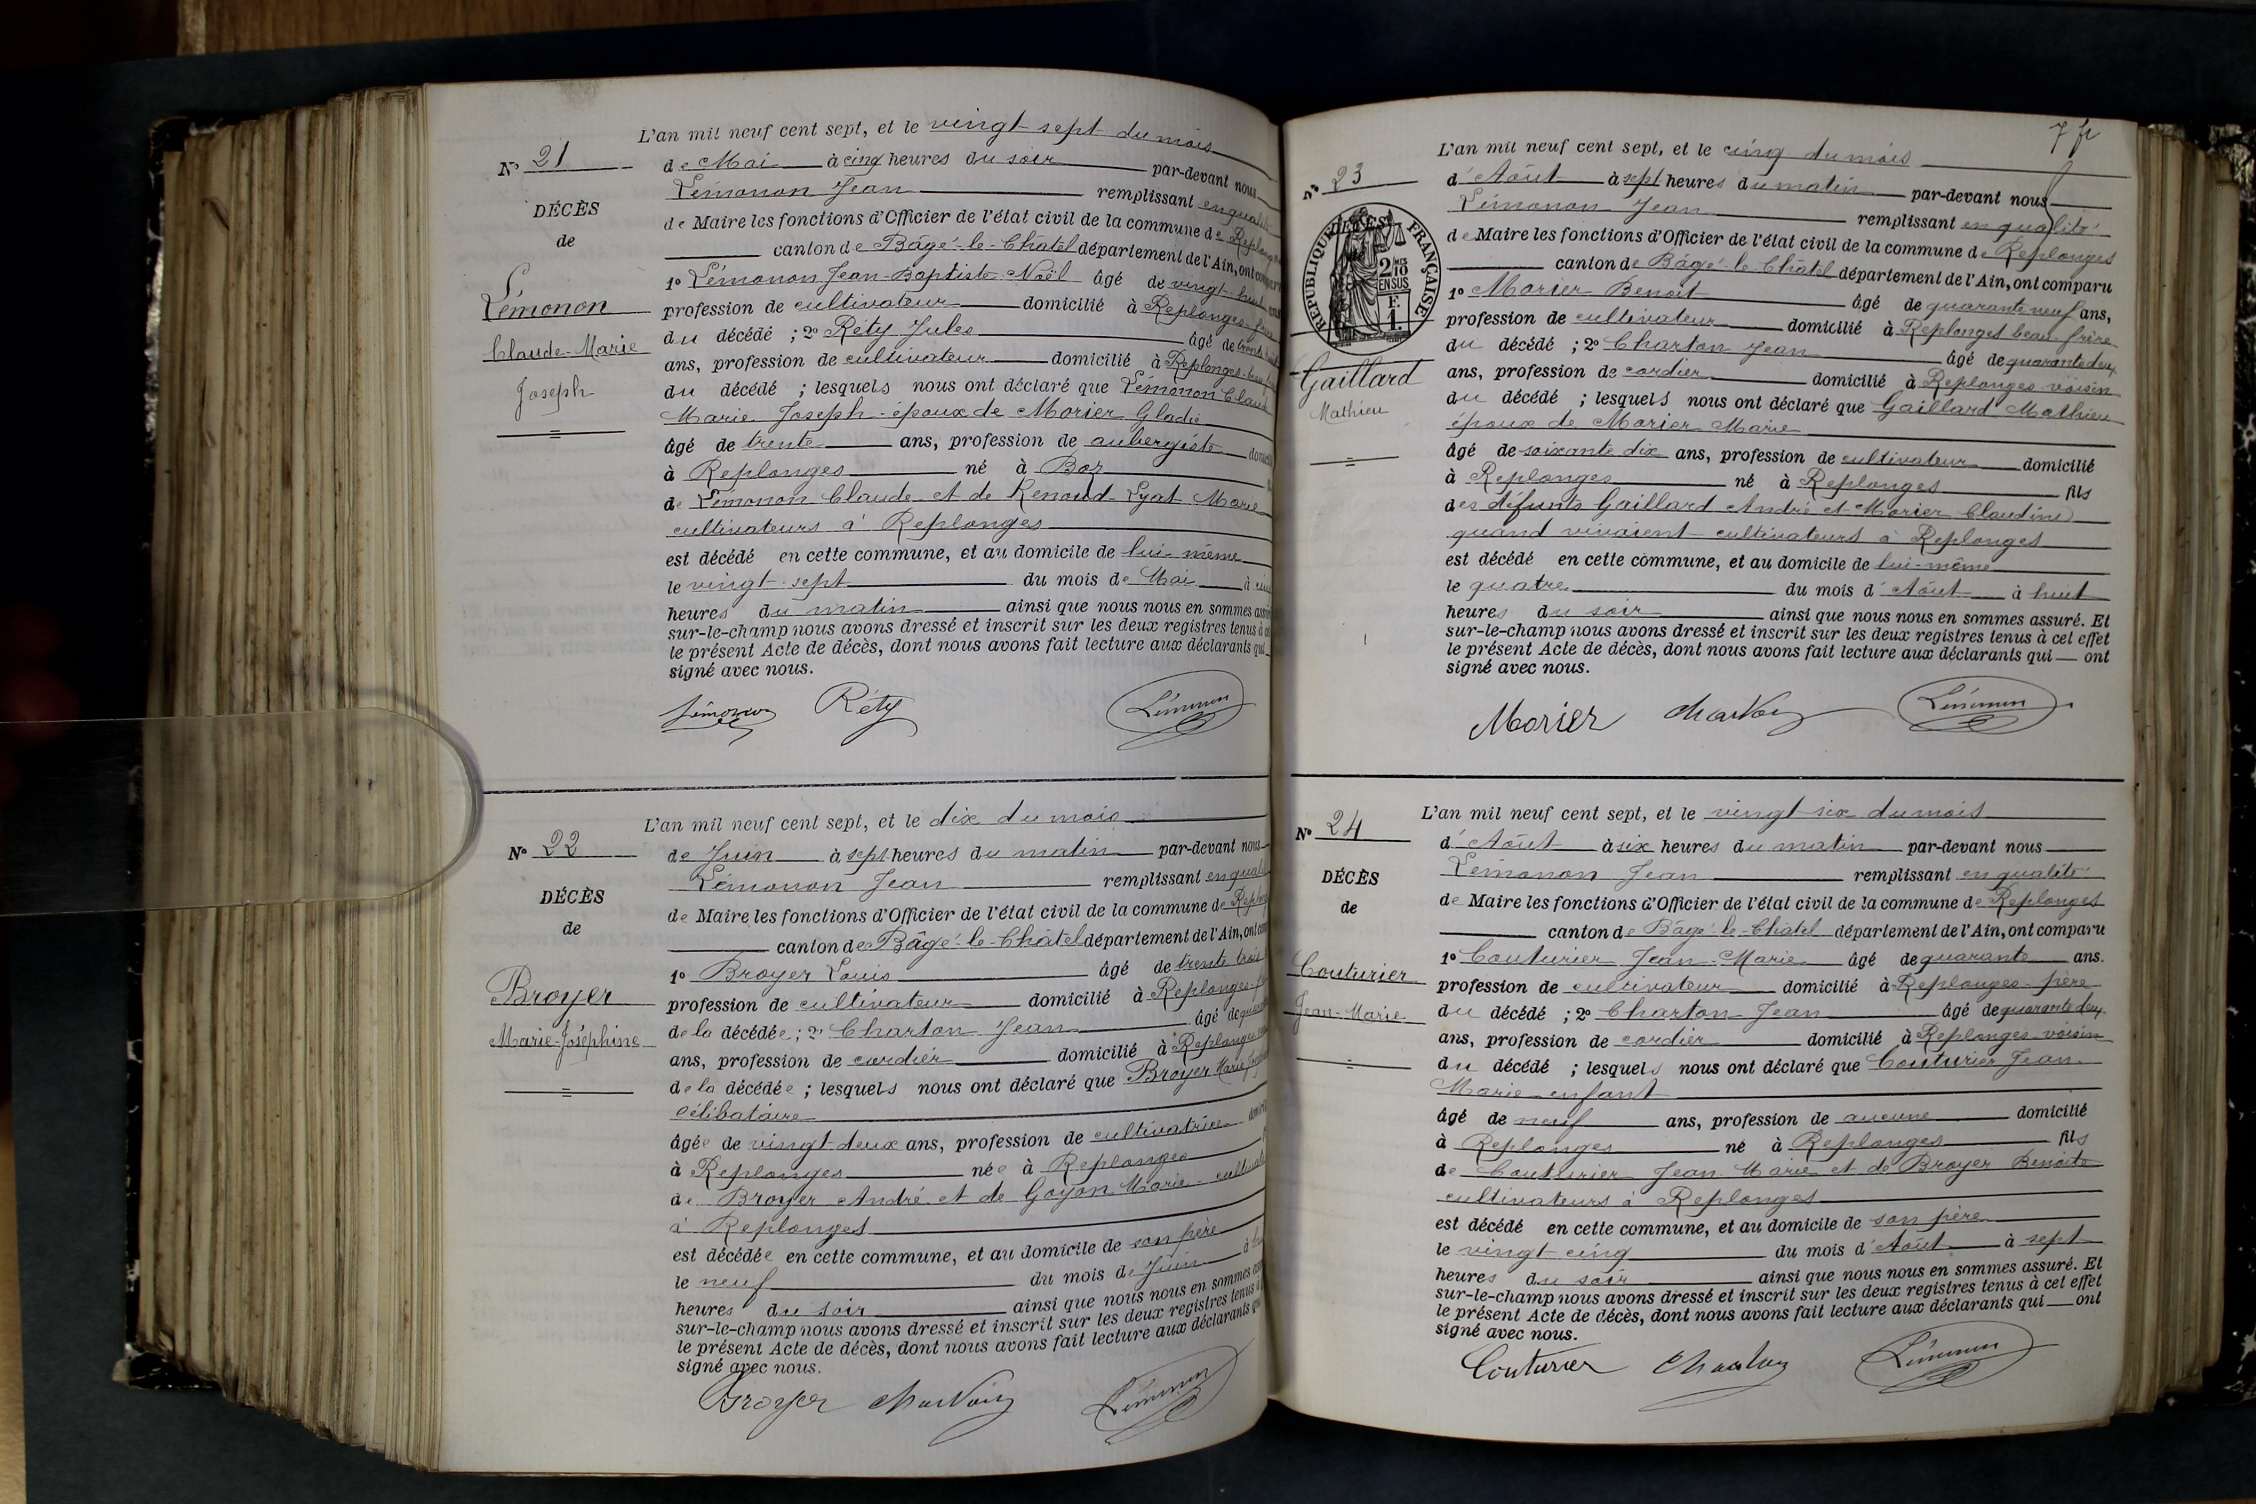 N° 21
DÉCÈS
de
Lémonon
Claude-Marie
Joseph
L'an mil neuf cent sept, et le vingt sept du mois
de Mai à cinq heures du soir par-devant nous
Lémonon Jean remplissant en qualité
de Maire les fonctions d'Officier de l'état civil de la commune de Replonges
canton de Bâgé-le-Châtel département de l'Ain, ont comparu
1° Lémonon Jean-Baptiste-Noël âgé de vingt-huit ans
profession de cultivateur domicilié à Replonges frère
du décédé ; 2° Réty Jules âgé de trente
ans, profession de cultivateur domicilié à Replonges beau
du décédé ; lesquels nous ont déclaré que Lémonon Claude
Marie Joseph époux de Morier Gladie
âgé de trente ans, profession de aubergiste domicilié
à Replonges né à Boz
de Lémonon Claude et de Renoud-Lyat Marie
cultivateurs à Replonges
est décédé en cette commune, et au domicile de lui-même
le vingt-sept du mois de Mai à
heures du matin ainsi que nous nous en sommes assuré
sur-le-champ nous avons dressé et inscrit sur les deux registres tenus à cet
le présent Acte de décès, dont nous avons fait lecture aux déclarants qui
signé avec nous.
Lémonon Réty Lémonon
N° 22
DÉCÈS
de
Broyer
Marie-Joséphine
L'an mil neuf cent sept, et le dix du mois
de Juin à sept heures du matin par-devant nous
Lémonon Jean remplissant en qualité
de Maire les fonctions d'Officier de l'état civil de la commune de Replonges
canton de Bâgé-le-Châtel département de l'Ain, ont comparu
1° Broyer Louis âgé de trente trois
profession de cultivateur domicilié à Replonges
de la décédée ; 2° Charton Jean âgé de
ans, profession de cordier domicilié à Replonges
de la décédée ; lesquels nous ont déclaré que Broyer Marie Joséphine
célibataire
âgée de vingt-deux ans, profession de cultivatrice
à Replonges née à Replonges
de Broyer André et de Goyon Marie
à Replonges
est décédée en cette commune, et au domicile de son père
le neuf du mois de Juin à
heures du soir ainsi que nous nous en sommes
sur-le-champ nous avons dressé et inscrit sur les deux registres tenus à
le présent Acte de décès, dont nous avons fait lecture aux déclarants qui
signé avec nous.
Broyer Charton Lémonon
7 fr
N° 23
RÉPUBLIQUE FRANÇAISE
DÉCÈS
2 10 MES
EN SUS
F.
1.
Gaillard
Mathieu
L'an mil neuf cent sept, et le cinq du mois
d'Août à sept heures du matin par-devant nous
Lémonon Jean remplissant en qualité
de Maire les fonctions d'Officier de l'état civil de la commune de Replonges
canton de Bâgé-le-Châtel département de l'Ain, ont comparu
1° Morier Benoit âgé de quarante neuf ans,
profession de cultivateur domicilié à Replonges beau frère
du décédé ; 2° Charton Jean âgé de quarante deux
ans, profession de cordier domicilié à Replonges voisin
du décédé ; lesquels nous ont déclaré que Gaillard Mathieu
époux de Morier Marie
âgé de soixante dix ans, profession de cultivateur domicilié
à Replonges né à Replonges fils
des défunts Gaillard André et Morier Claudine
quand vivaient cultivateurs à Replonges
est décédé en cette commune, et au domicile de lui-même
le quatre du mois d'Août à huit
heures du soir ainsi que nous nous en sommes assuré. Et
sur-le-champ nous avons dressé et inscrit sur les deux registres tenus à cet effet
le présent Acte de décès, dont nous avons fait lecture aux déclarants qui ont
signé avec nous.
Morier Charton Lémonon
N° 24
DÉCÈS
de
Couturier
Jean-Marie
L'an mil neuf cent sept, et le vingt six du mois
d'Août à six heures du matin par-devant nous
Lémonon Jean remplissant en qualité
de Maire les fonctions d'Officier de l'état civil de la commune de Replonges
canton de Bâgé-le-Châtel département de l'Ain, ont comparu
1° Couturier Jean-Marie âgé de quarante ans.
profession de cultivateur domicilié à Replonges père
du décédé ; 2° Charton Jean âgé de quarante deux
ans, profession de cordier domicilié à Replonges voisin
du décédé ; lesquels nous ont déclaré que Couturier Jean
Marie enfant
âgé de neuf ans, profession de aucune domicilié
à Replonges né à Replonges fils
de Couturier Jean Marie et de Broyer Benoite
cultivateurs à Replonges
est décédé en cette commune, et au domicile de son père
le vingt cinq du mois d'Août à sept
heures du soir ainsi que nous nous en sommes assuré. Et
sur-le-champ nous avons dressé et inscrit sur les deux registres tenus à cet effet
le présent Acte de décès, dont nous avons fait lecture aux déclarants qui ont
signé avec nous.
Couturier Charton Lémonon